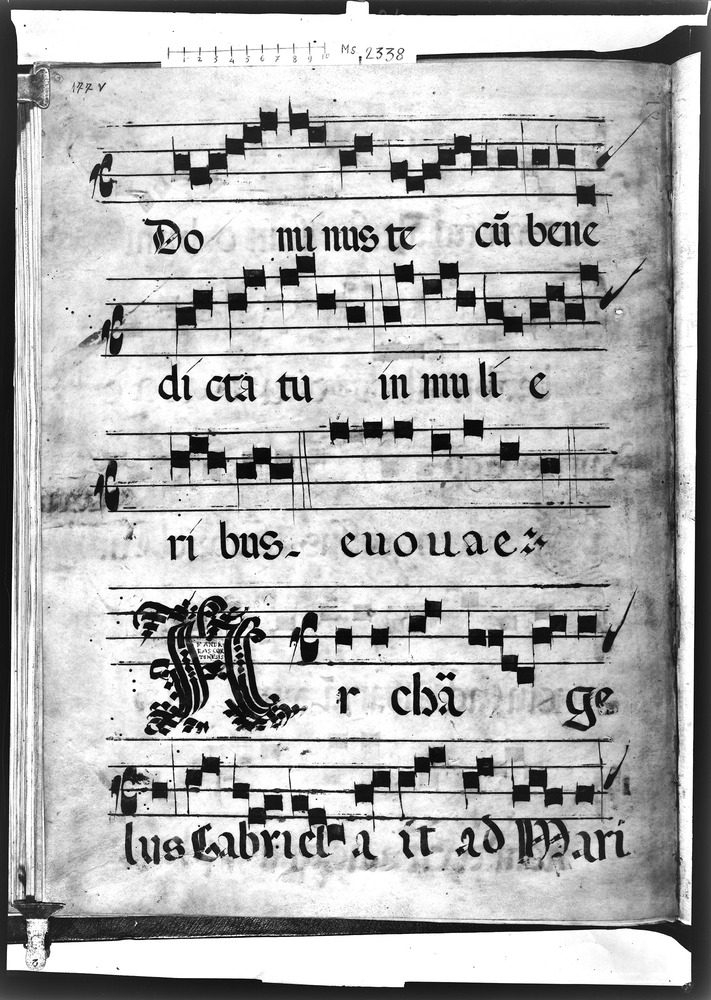 1 2 3 4 5 6 7 8 9 10 Ms. 2338
177 v
Do mi nus te cū bene
di cta tu in mu li e
ri bus. euouae
A r chā ge
lus Gabriel a it ad Mari